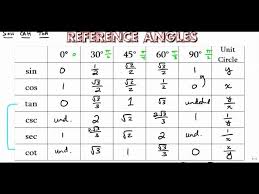 SOH CAH TOA
REFERENCE ANGLES
0° 0 30° π/6 45° π/4 60° π/3 90° π/2 Unit Circle
sin 0 1/2 √2/2 √3/2 1 y
cos 1 √3/2 √2/2 1/2 0 x
tan 0 √3/3 1 √3 undef y/x
csc und. 2 √2 2√3/3 1 1/y
sec 1 2√3/3 √2 2 und. 1/x
cot und. √3 1 √3/3 0 x/y